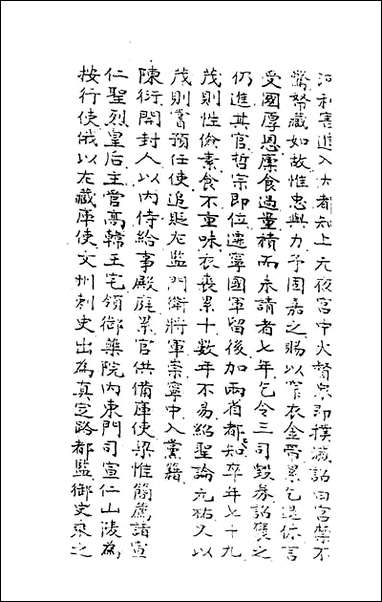 河利害進入内都知上元夜宫中火督衆即撲滅詔曰宫禁不
驚帑藏如故惟忠與力予固嘉之賜以窄衣金帶累乞退休言
受國厚恩廪食過量積而未請者七年乞令三司毀券詔褒之
仍進其官哲宗即位遷寧國軍留後加兩省都知卒年七十九
茂則性儉素食不重味衣裘累十數年不易紹聖論元祐又以
茂則嘗預任使追貶左監門衛將軍崇寧中入黨籍
陳衍開封人以内侍給事殿庭累官供備庫使梁惟簡薦諸宣
仁聖烈皇后主管高韓王宅領御藥院内東門司宣仁山陵為
按行使俄以左藏庫使文州刺史出為真定路都監御史來之